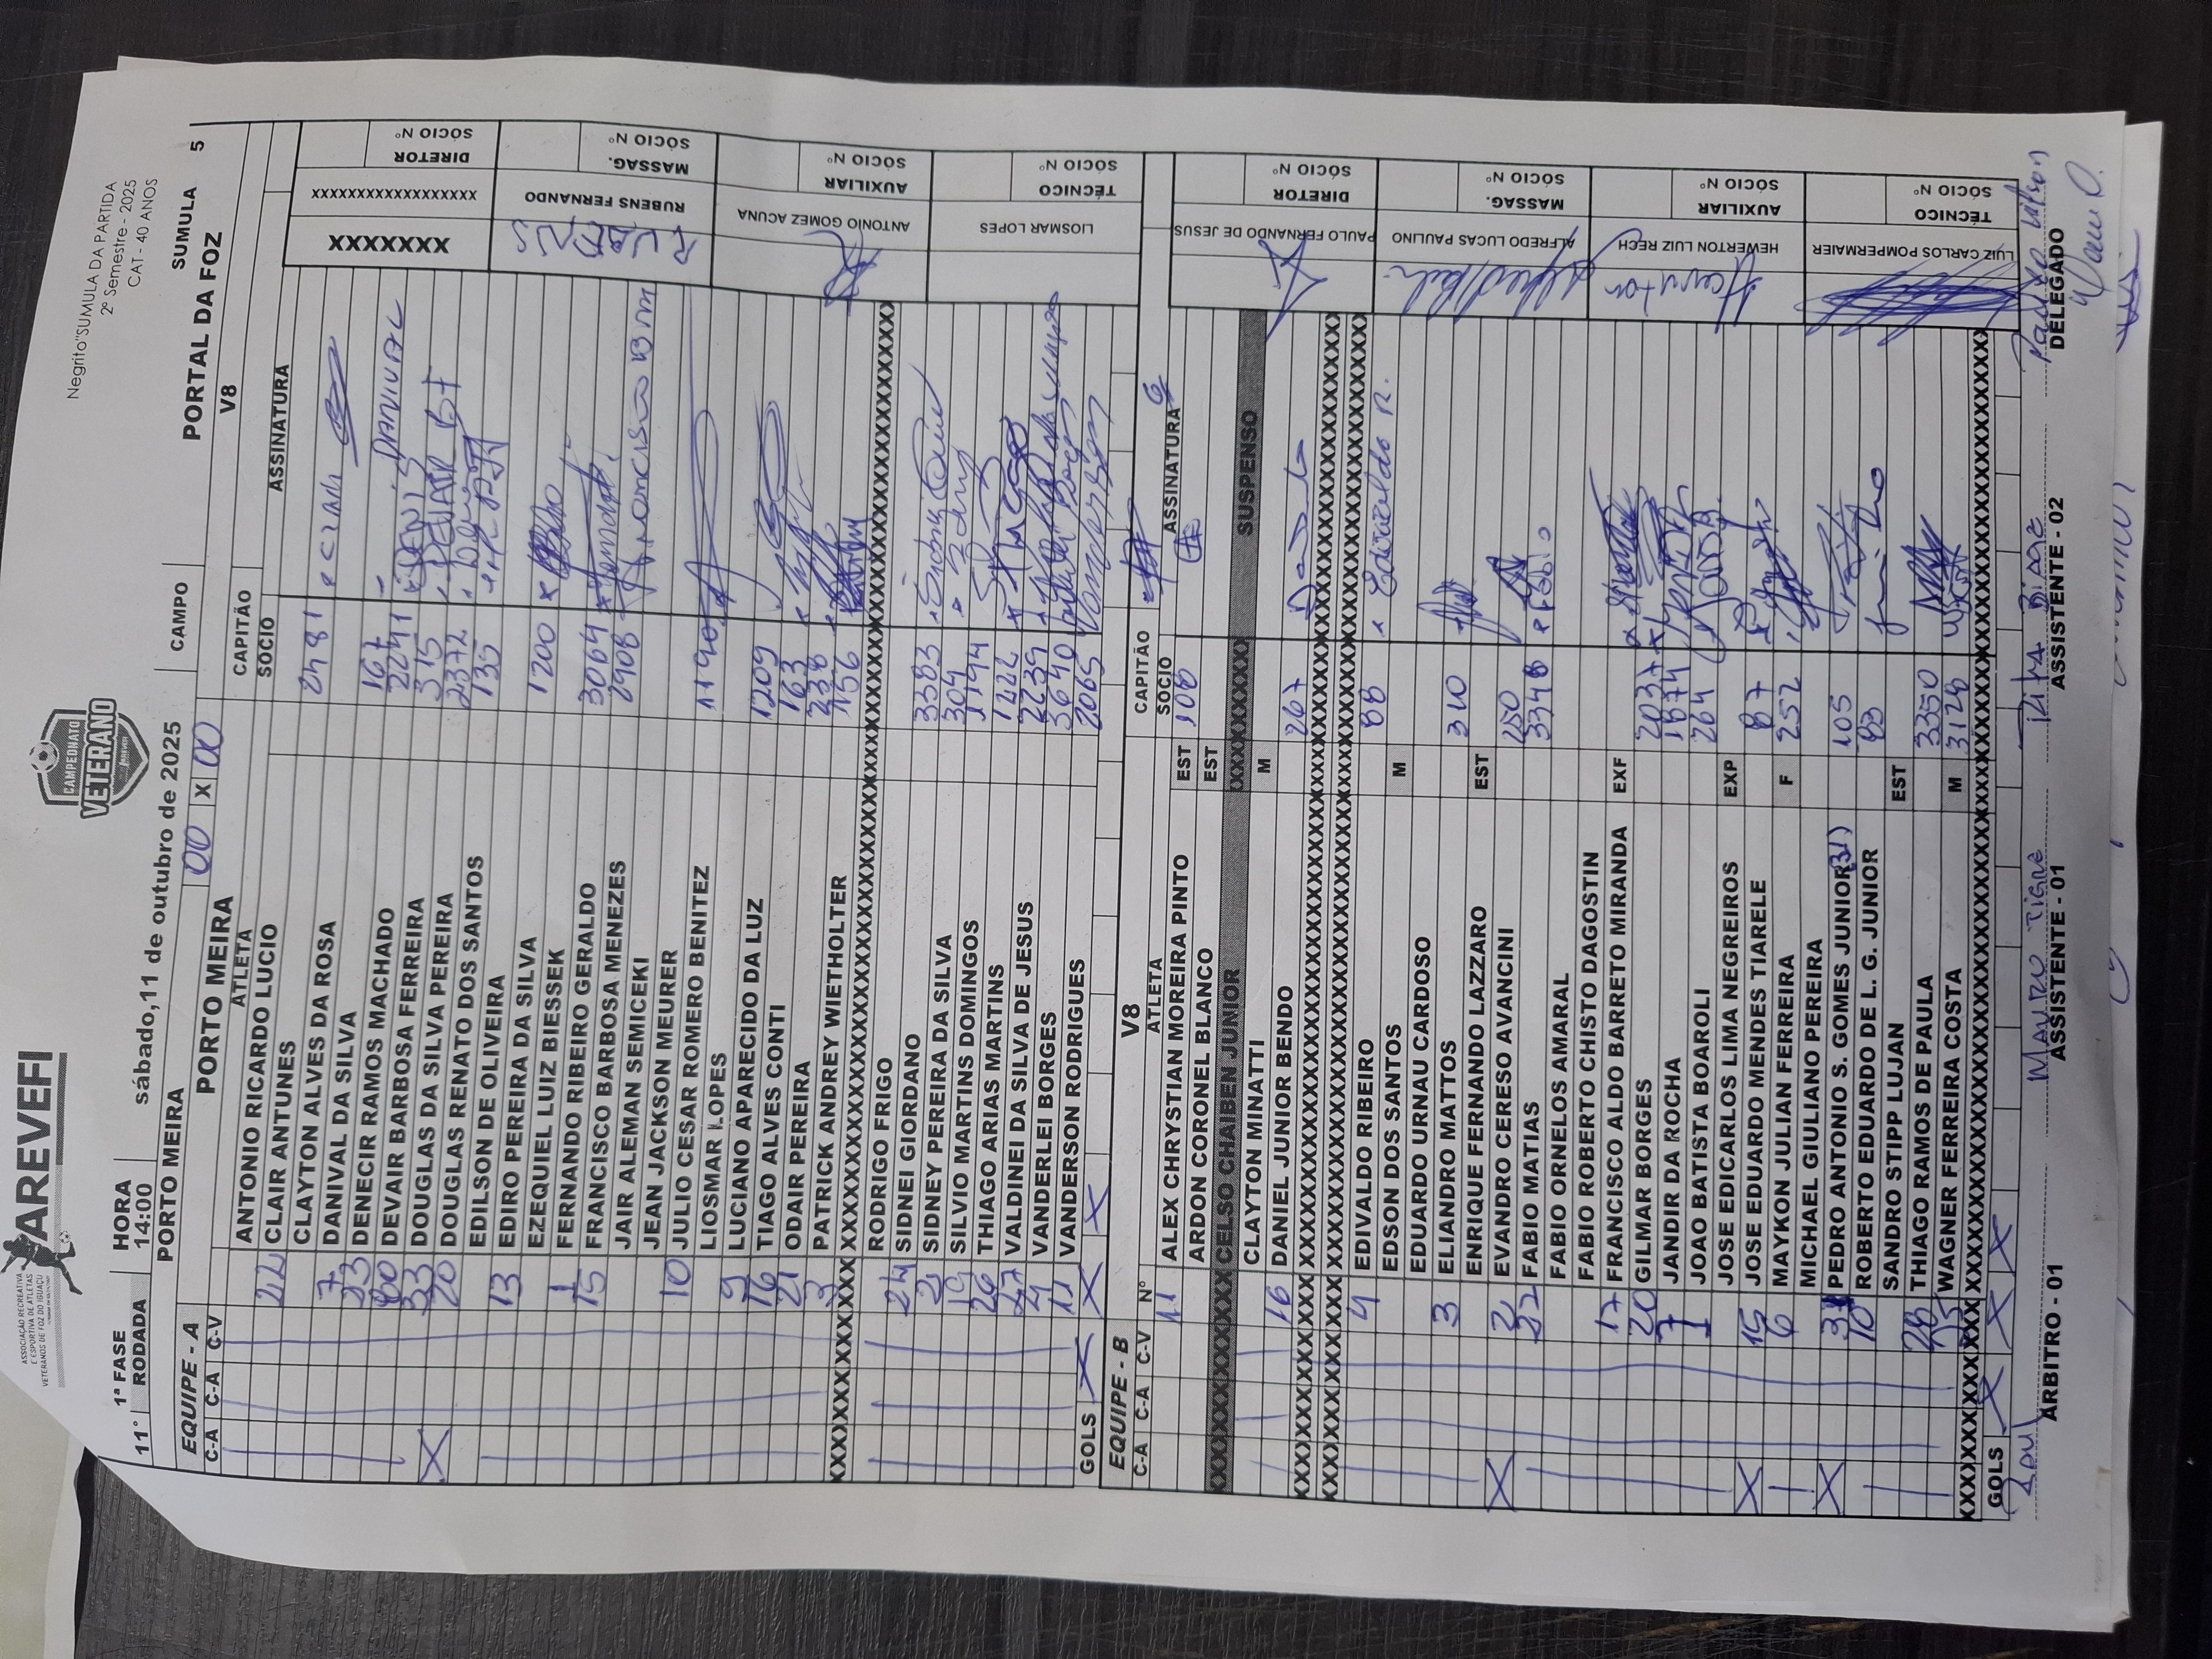 Negrito"SUMULA DA PARTIDA
2º Semestre - 2025
CAT - 40 ANOS
AREVEFI
ASSOCIAÇÃO RECREATIVA
E ESPORTIVA DE ATLETAS
VETERANOS DE FOZ DO IGUAÇU
CAMPEONATO
VETERANO
1ª FASE HORA sábado,11 de outubro de 2025 CAMPO PORTAL DA FOZ SUMULA
11° RODADA 14:00 5
PORTO MEIRA 00 X 00 V8
EQUIPE - A PORTO MEIRA CAPITÃO
C-A C-A C-V ATLETA SOCIO ASSINATURA
ANTONIO RICARDO LUCIO
22 CLAIR ANTUNES 2481
CLAYTON ALVES DA ROSA
7 DANIVAL DA SILVA 167 DANIVAL
23 DENECIR RAMOS MACHADO 2241 DENIS
DEVAIR BARBOSA FERREIRA 315 DEVAIR
33 DOUGLAS DA SILVA PEREIRA 2372
20 DOUGLAS RENATO DOS SANTOS 135
EDILSON DE OLIVEIRA
13 EDIRO PEREIRA DA SILVA 1200
EZEQUIEL LUIZ BIESSEK
1 FERNANDO RIBEIRO GERALDO 3064
15 FRANCISCO BARBOSA MENEZES 2908
JAIR ALEMAN SEMICEKI
JEAN JACKSON MEURER
10 JULIO CESAR ROMERO BENITEZ 1190
LIOSMAR LOPES
9 LUCIANO APARECIDO DA LUZ 1209
16 TIAGO ALVES CONTI 163
21 ODAIR PEREIRA 238
3 PATRICK ANDREY WIETHOLTER 156
RODRIGO FRIGO
24 SIDNEI GIORDANO 3383
2 SIDNEY PEREIRA DA SILVA 304
19 SILVIO MARTINS DOMINGOS 1194
26 THIAGO ARIAS MARTINS 1222 THIAGO
27 VALDINEI DA SILVA DE JESUS 2239
4 VANDERLEI BORGES 3640
11 VANDERSON RODRIGUES 2065
GOLS
XXXXXXX XXXXXXXXXXXXXXXXXX DIRETOR SÓCIO Nº
RUBENS RUBENS FERNANDO MASSAG. SÓCIO N
ANTONIO GOMEZ ACUNA AUXILIAR SÓCIO N
LIOSMAR LOPES TÉCNICO SÓCIO Nº
EQUIPE - B V8 CAPITÃO
C-A C-A C-V Nº ATLETA SOCIO ASSINATURA
11 ALEX CHRYSTIAN MOREIRA PINTO EST 100
ARDON CORONEL BLANCO EST
CELSO CHAIBEN JUNIOR SUSPENSO
CLAYTON MINATTI M
16 DANIEL JUNIOR BENDO 267
4 EDIVALDO RIBEIRO 88 Edivaldo R.
EDSON DOS SANTOS M
EDUARDO URNAU CARDOSO
3 ELIANDRO MATTOS 310
ENRIQUE FERNANDO LAZZARO EST
2 EVANDRO CERESO AVANCINI 250
22 FABIO MATIAS 3348 FABIO
FABIO ORNELOS AMARAL
FABIO ROBERTO CHISTO DAGOSTIN
17 FRANCISCO ALDO BARRETO MIRANDA EXF
20 GILMAR BORGES 2037
7 JANDIR DA ROCHA 1874
1 JOAO BATISTA BOAROLI 264
JOSE EDICARLOS LIMA NEGREIROS EXP
15 JOSE EDUARDO MENDES TIARELE 87
6 MAYKON JULIAN FERREIRA F 252
MICHAEL GIULIANO PEREIRA
31 PEDRO ANTONIO S. GOMES JUNIOR (31) 105
10 ROBERTO EDUARDO DE L. G. JUNIOR 93
SANDRO STIPP LUJAN EST
28 THIAGO RAMOS DE PAULA 3350
WAGNER FERREIRA COSTA M 3128
GOLS
PAULO FERNANDO DE JESUS DIRETOR SÓCIO Nº
ALFREDO LUCAS PAULINO MASSAG. SÓCIO Nº
Hewerton HEWERTON LUIZ RECH AUXILIAR SÓCIO Nº
LUIZ CARLOS POMPERMAIER TÉCNICO SÓCIO Nº
ARBITRO - 01 ASSISTENTE - 01 ASSISTENTE - 02 DELEGADO